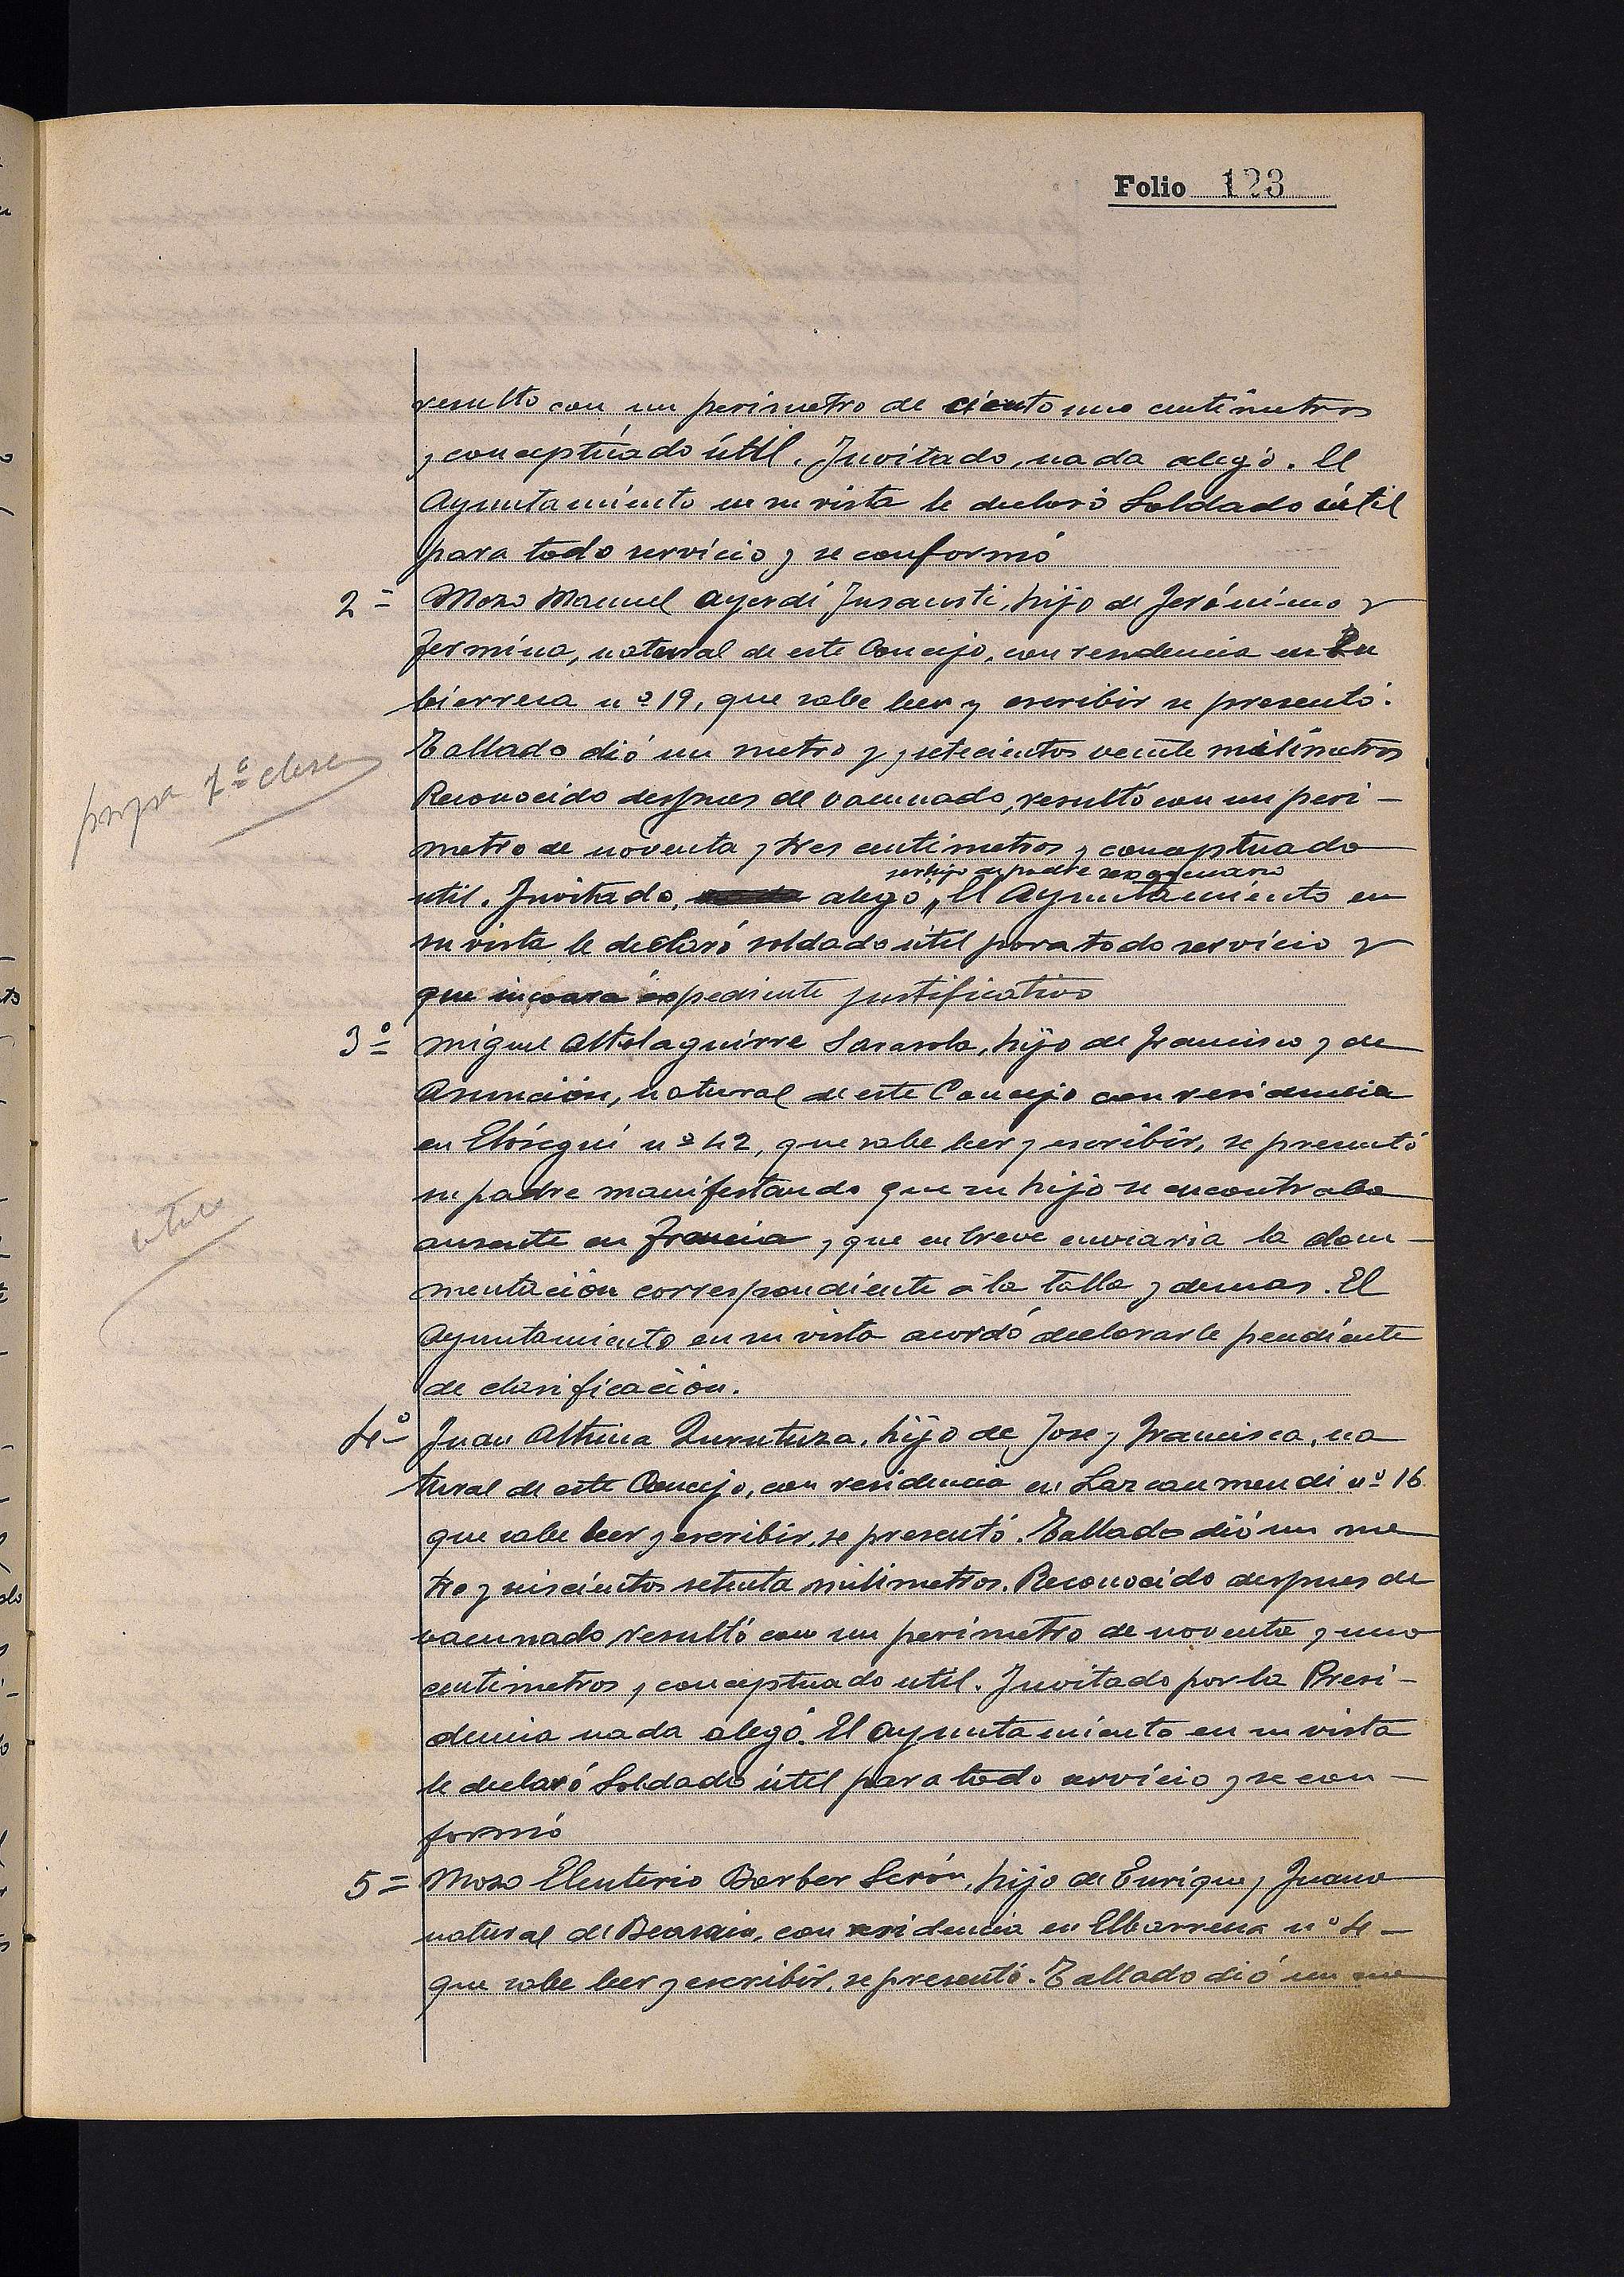 Folio 123
resulto con un perimetro de ciento uno centimetros
y conceptúado útil. Invitado, nada alegó. El
Ayuntamiento en su vista le declaró Soldado útil
para todo servicio y se conformó
2= Mozo Manuel Ayerdi Insausti, hijo de Jerónimo y
Fermina, natural de este Concejo, con residencia en
bierrena nº 19, que sabe leer y escribir se presentó.
Tallado dió un metro y setecientos veinte milimetros
Reconocido despues de vacunado, resultó con un peri-
metro de noventa y tres centimetros y conceptuado
ser hijo de padre sexagenario
util. Invitado, alego " El Ayuntamiento en
su vista le declaró soldado útil para todo servicio y
que incoara expediente justificativo
prpra 1ª clase
3º Miguel Altolaguirre Sarasola, hijo de Francisco y de
Asunción, natural de este Concejo con residencia
en Elósegui nº 42, que sabe leer y escribir, se presentó
su padre manifestando que su hijo se encontraba
ausente en Francia y que en breve enviaria la docu-
mentación correspondiente á la talla y demas. El
Ayuntamiento en su vista acordó declararle pendiente
de clasificación.
4º Juan Altuna Zurutuza, hijo de Jose y Francisca, na
tural de este Concejo, con residencia en Lazcanmendi nº 16
que sabe leer y escribir, se presentó. Tallado dió un me
tro y seiscientos setenta milimetros. Reconocido despues de
vacunado resultó con un perimetro de noventa y uno
centimetros y conceptuado util. Invitado por la Presi-
dencia nada alegó. El ayuntamiento en su vista
le declaró Soldado útil para todo servicio y se con-
formó
5= Mozo Eleuterio Barber Serón, hijo de Enrique y Juana
natural de Beasain, con residencia en Elbarrena nº 4-
que sabe leer y escribir, se presentó. Tallado dió un me